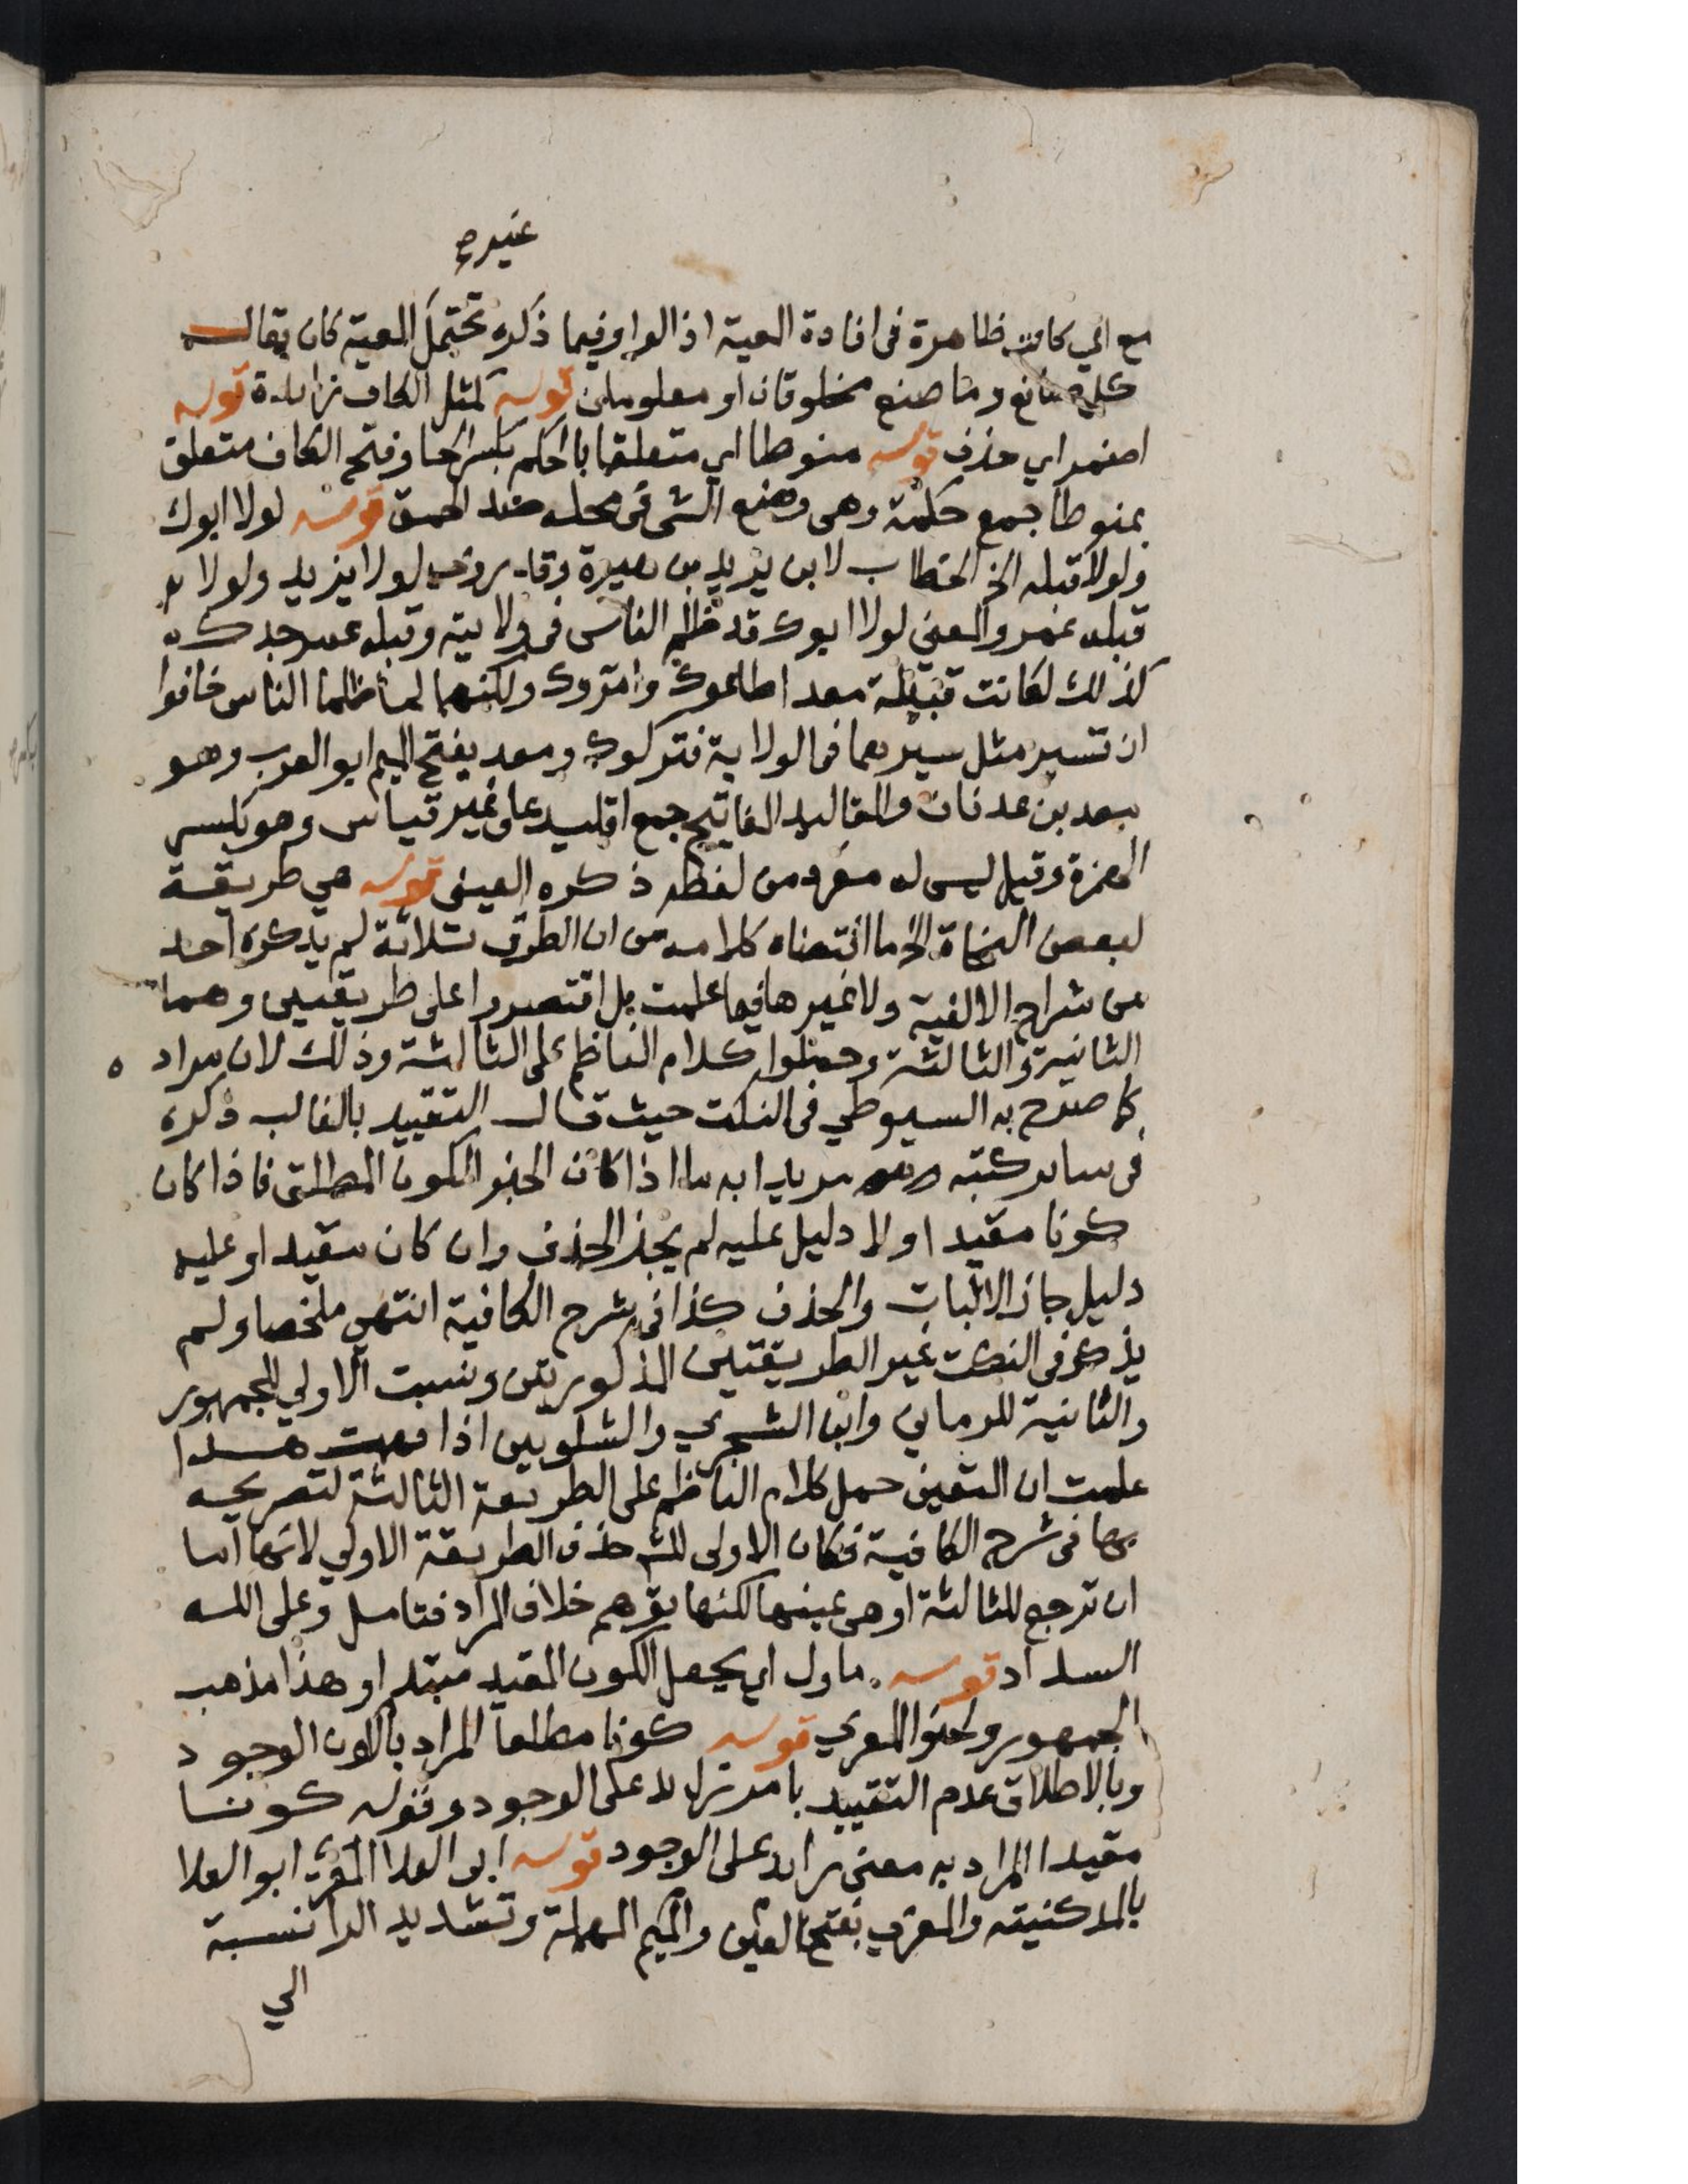 غيره
مع اي كانت ظاهرة فى افادة المعية اذ الواو فيما ذكره تحتمل المعية كان يقال
كل صانع وما صنع مخلوقان او معلومان قوله كمثل الكاف زايدة قوله
اضمر اي حذف قوله منوطا اي متعلقا بالحكم بكسر الحا وفتح الكاف متعلق
بمنوطا جمع حكمة وهى وضع الشى فى محله ضد الحمق قوله لولا ابوك
ولولا قبله الخ الخطاب لابن يزيد بن هبيرة وقد روي لولا يزيد ولولا
قبله عمر والمعنى لولا ابوك قد ظلم الناس فى ولايته وقبله عمر جدك
كذلك لكانت قبيلة معد اطاعوك وامروك ولكنهما لما ظلما الناس خافوا
ان تسير مثل سيرهما فى الولاية فتركوك ومعد بفتح الميم ابو العرب وهو
معد بن عدنان والمقاليد المفاتيح جمع اقليد على غير قياس وهو بكسر
الهمزة وقيل ليس له مفرد من لفظه ذكره العينى قوله هي طريقة
لبعض النحاة الخ ما اقتضاه كلامه من ان الطرق ثلاثة لم يذكره احد
من شراح الالفية ولا غيرها فيما علمت بل اقتصروا على طريقتين وهما
الثانية والثالثة وحملوا كلام الناظم على الثالثة وذلك لان مراد ه
كما صرح به السيوطي فى النكت حيث قال التقييد بالغالب ذكره
فى ساير كتبه مريدا به ما اذا كان الخبر الكون المطلق فاذا كان
كونا مقيدا ولا دليل عليه لم يجز الحذف وان كان مقيدا وعليه
دليل جاز الاثبات والحذف كذا فى شرح الكافية انتهى ملخصا ولم
يذكر فى النكت غير الطريقتين المذكورتين ونسبت الاولي للجمهور
والثانية للرماني وابن الشجري والشلوبين اذا فهمت هذا
علمت ان المتعين حمل كلام الناظم على الطريقة الثالثة لتصريحه
بها فى شرح الكافية فكان الاولى للش حذف الطريقة الاولي لانها اما
ان ترجع للثالثة او هى عينها لكنها توهم خلاف المراد فتامل وعلى الله
السداد قوله ماول اي يجعل الكون المقيد مبتدا وهذا مذهب
الجمهور ولحنوا المعري قوله كونا مطلقا المراد بالكون الوجود
وبالاطلاق عدم التقييد بامر زايد على الوجود وقوله كونا
مقيدا المراد به معنى زايد على الوجود قوله ابى العلا المعري ابو العلا
بالمد كنيته والمعري بفتح العين والميم المهملة وتشديد الرا نسبة
الي